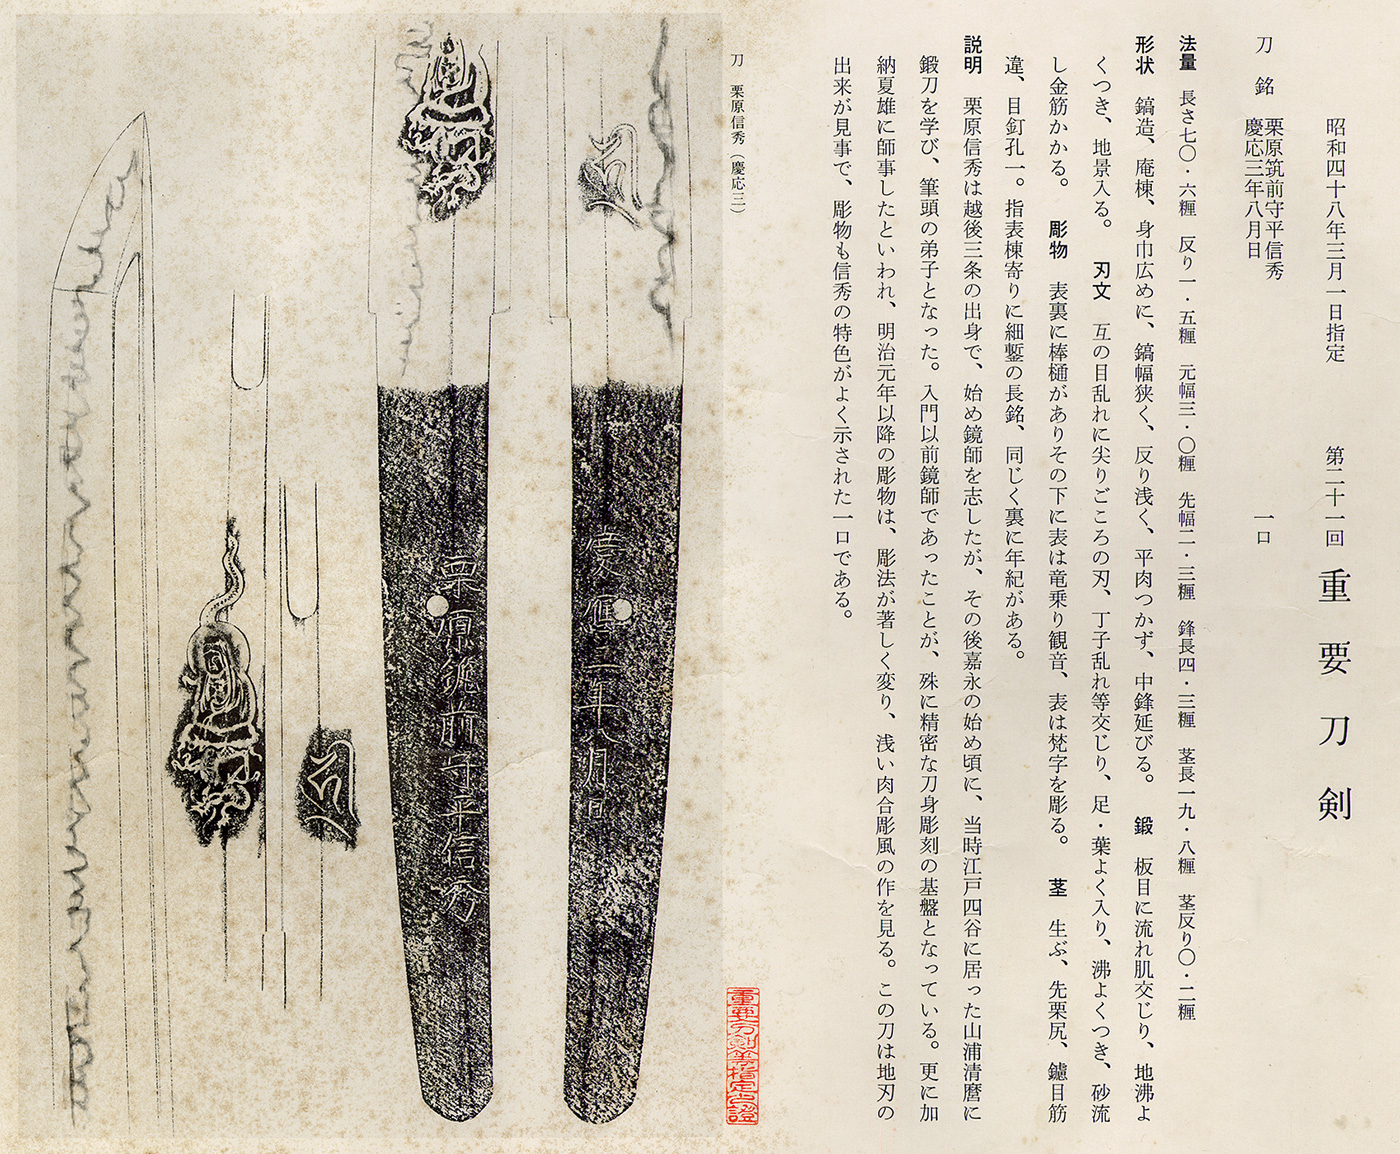 昭和四十八年三月一日指定　第二十一回　重要刀剣
刀　銘　栗原筑前守平信秀　一口
慶応三年八月日
法量　長さ七〇・六糎　反り一・五糎　元幅三・〇糎　先幅二・三糎　鋒長四・三糎　茎長一九・八糎　茎反り〇・二糎
形状　鎬造、庵棟、身巾広めに、鎬幅狭く、反り浅く、平肉つかず、中鋒延びる。　鍛　板目に流れ肌交じり、地沸よ
くつき、地景入る。　刃文　互の目乱れに尖りごころの刃、丁子乱れ等交じり、足・葉よく入り、沸よくつき、砂流
し金筋かかる。　彫物　表裏に棒樋がありその下に表は竜乗り観音、表は梵字を彫る。　茎　生ぶ、先栗尻、鑢目筋
違、目釘孔一。指表棟寄りに細鏨の長銘、同じく裏に年紀がある。
説明　栗原信秀は越後三条の出身で、始め鏡師を志したが、その後嘉永の始め頃に、当時江戸四谷に居った山浦清麿に
鍛刀を学び、筆頭の弟子となった。入門以前鏡師であったことが、殊に精密な刀身彫刻の基盤となっている。更に加
納夏雄に師事したといわれ、明治元年以降の彫物は、彫法が著しく変り、浅い肉合彫風の作を見る。この刀は地刃の
出来が見事で、彫物も信秀の特色がよく示された一口である。
刀　栗原信秀（慶応三）
重要刀剣等指定之證
慶應三年八月日
栗原筑前守平信秀